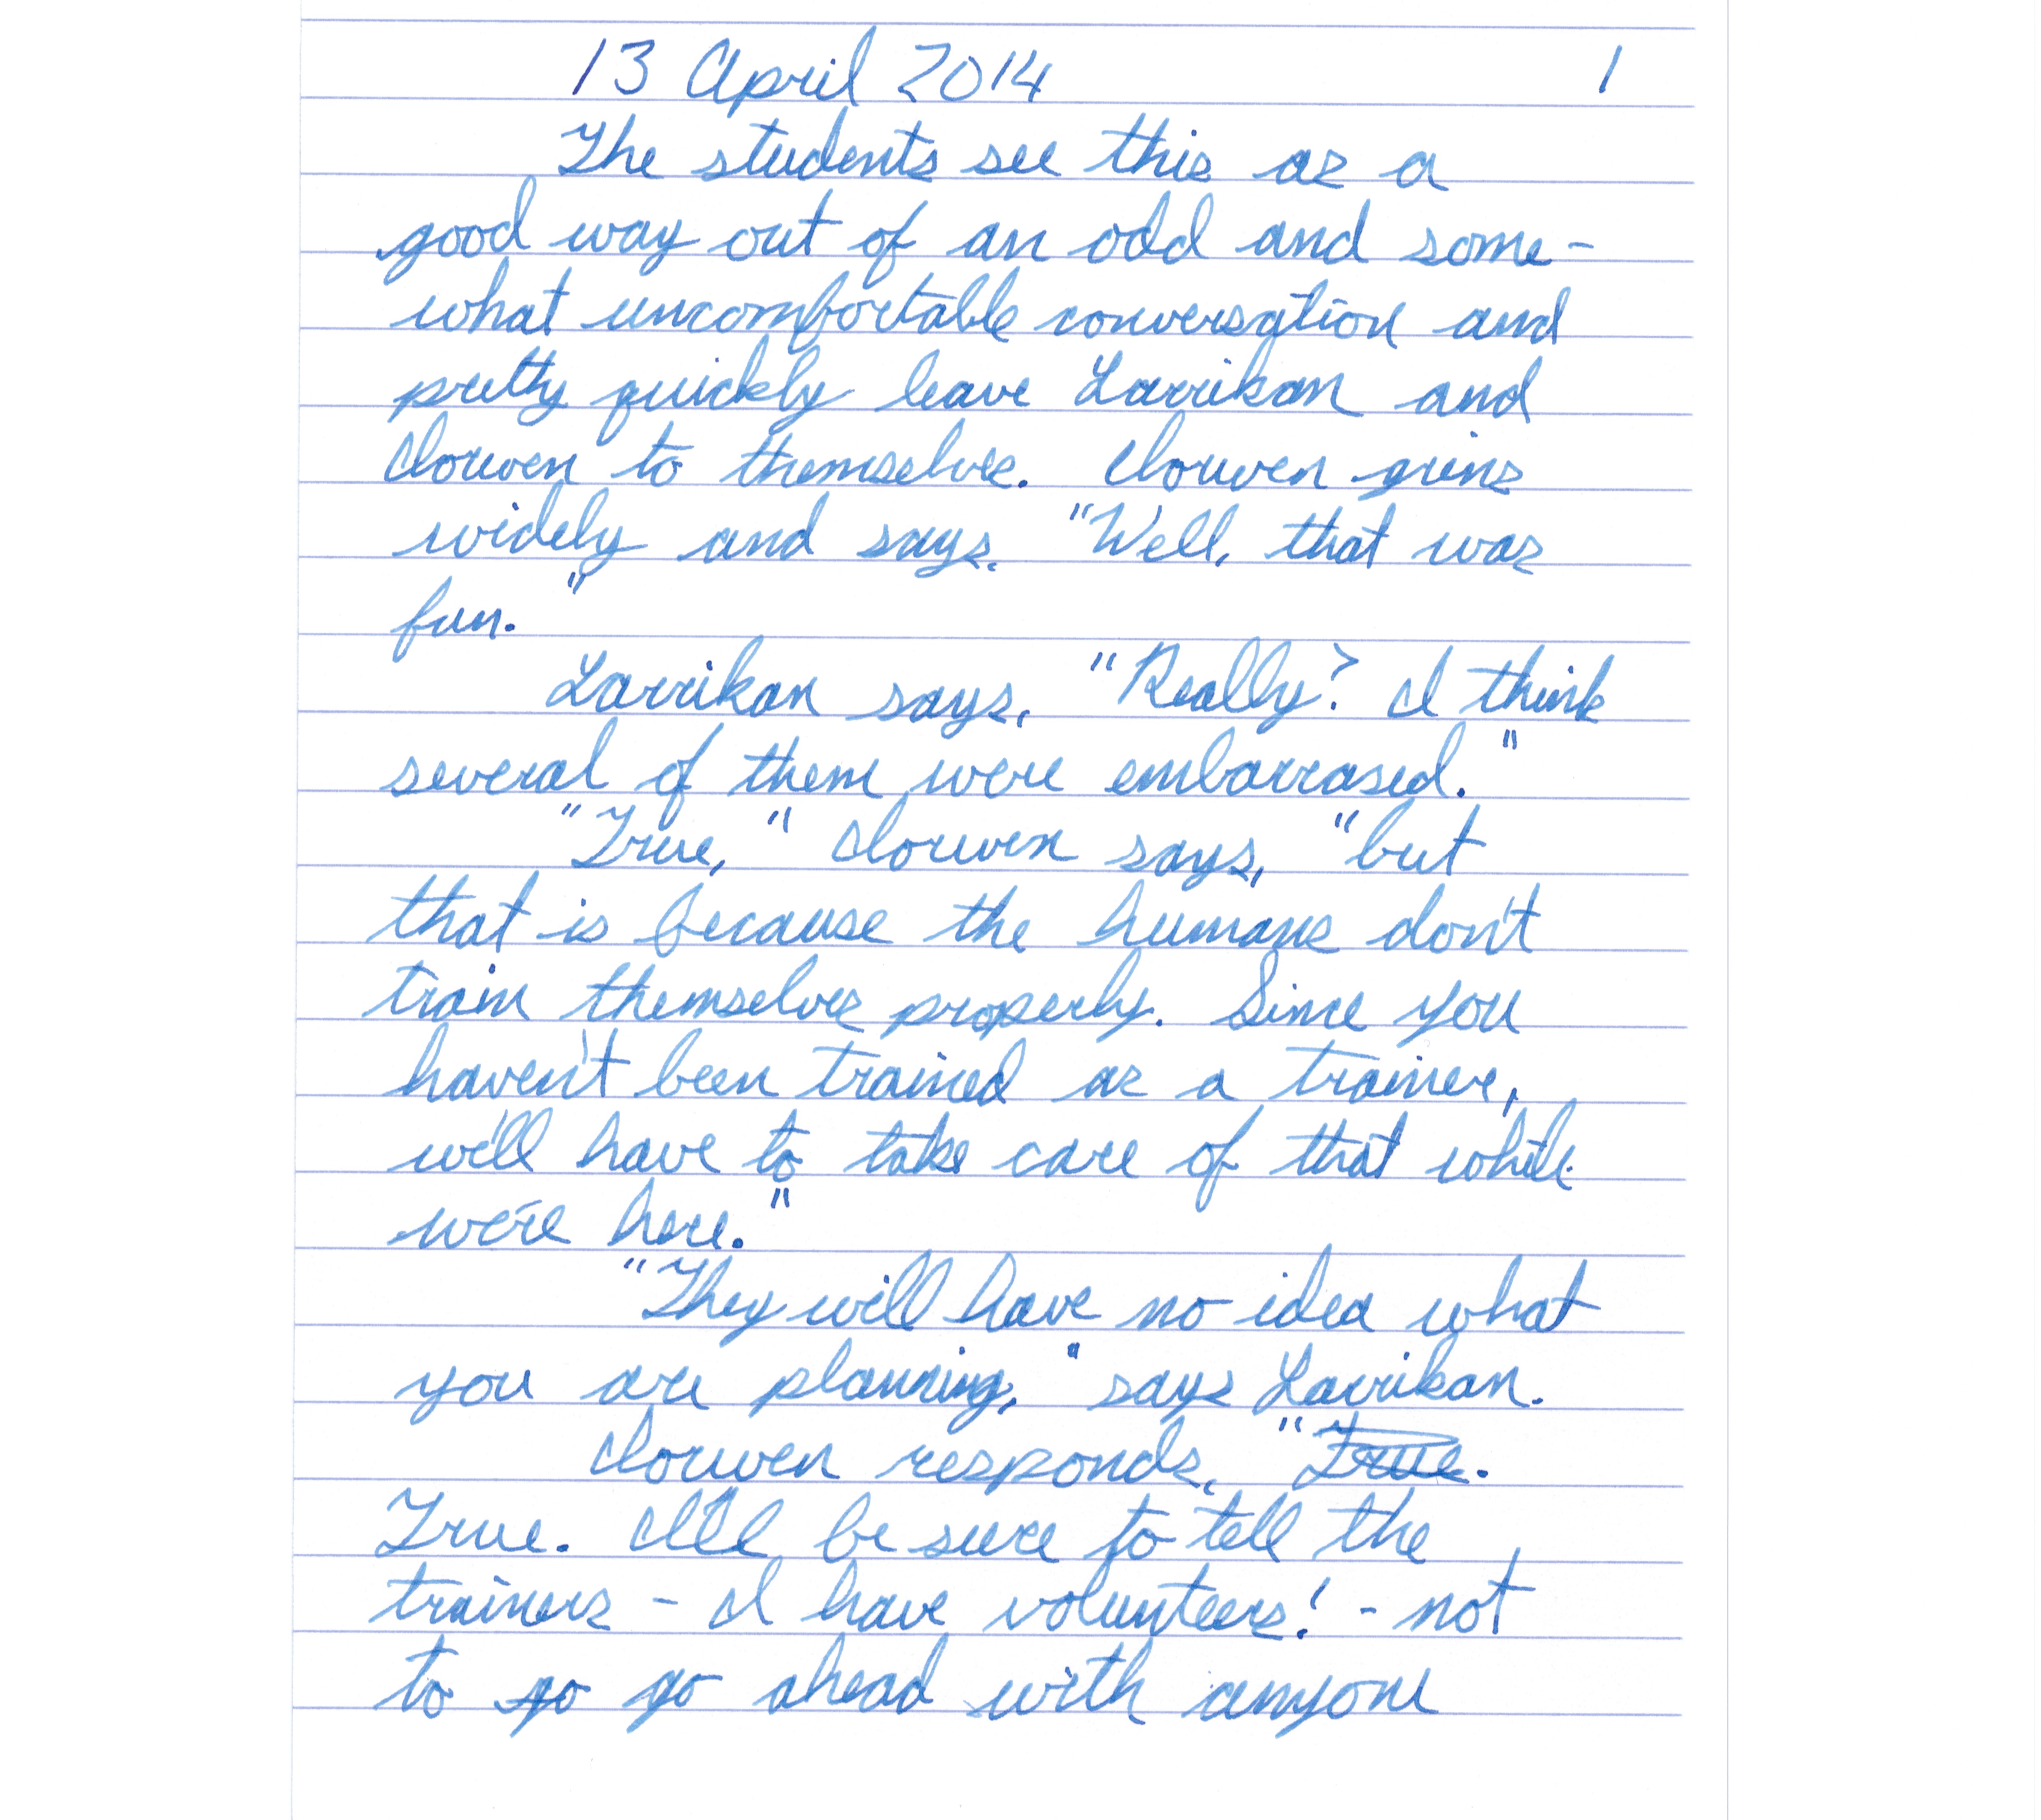 13 April 2014 1
The students see this as a
good way out of an odd and some-
what uncomfortable conversation and
pretty quickly leave Larrikan and
Clouven to themselves. Clouven grins
widely and says, "Well, that was
fun."
Larrikan says, "Really? I think
several of them were embarrased."
"True," Clouven says, "but
that is because the humans don't
train themselves properly. Since you
haven't been trained as a trainer,
we'll have to take care of that while
we're here."
"They will have no idea what
you are planning," says Larrikan.
Clouven responds, "True.
True. I'll be sure to tell the
trainers - I have volunteers! - not
to go go ahead with anyone